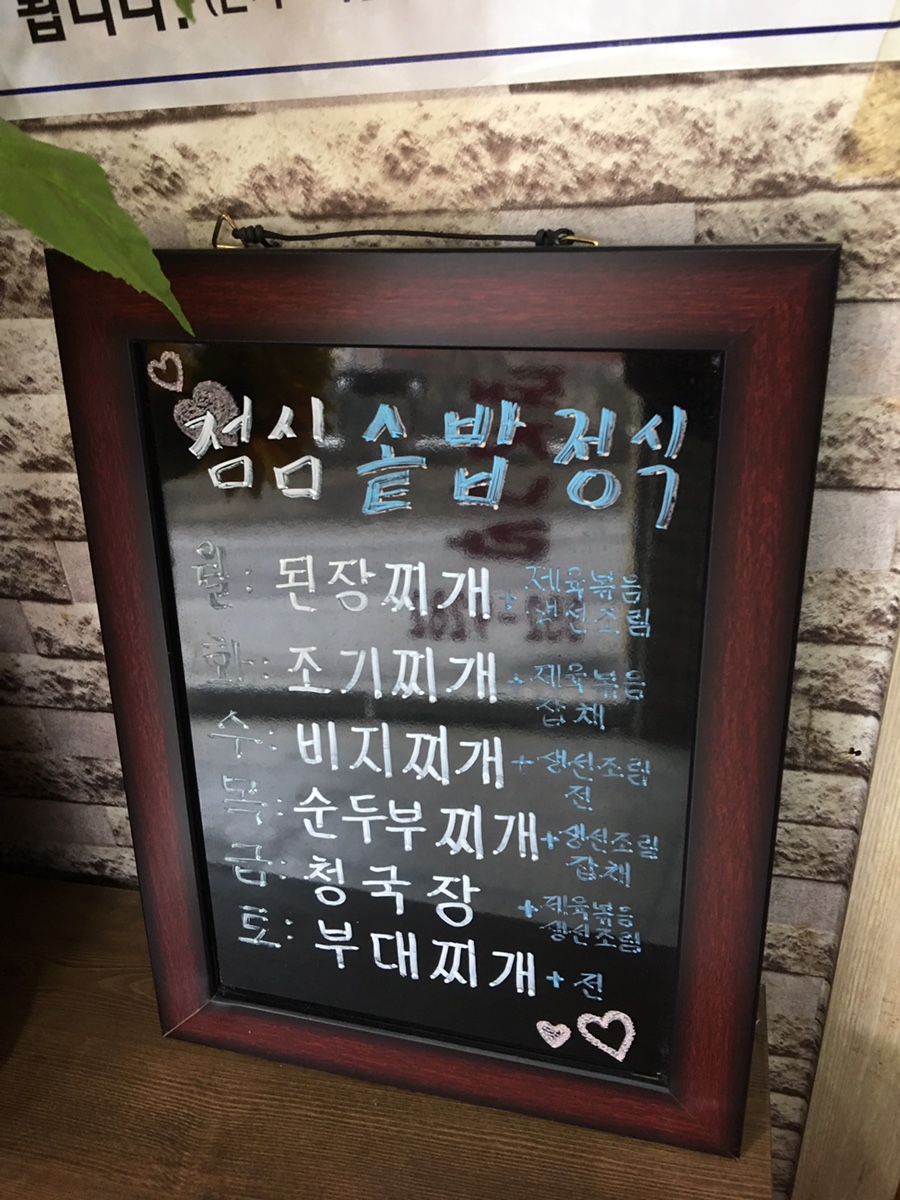 됩니다.
점심 솥밥 정식
월: 된장찌개 + 제육볶음
생선조림
화: 조기찌개 + 제육볶음
잡채
수: 비지찌개 + 생선조림
전
목: 순두부찌개 + 생선조림
잡채
금: 청국장 + 제육볶음
생선조림
토: 부대찌개 + 전